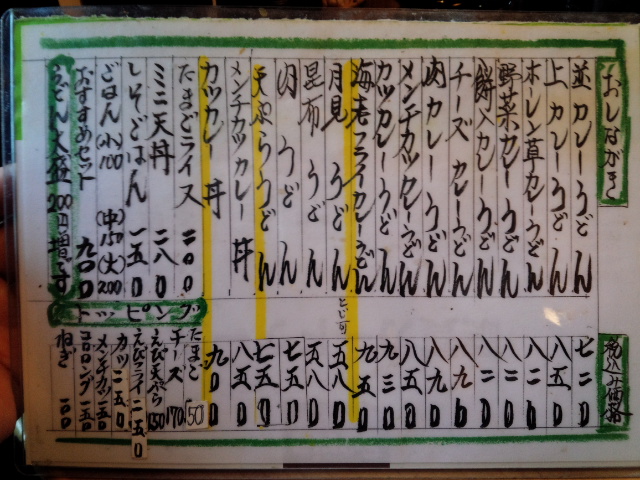 おしながき 税込み価格
並カレーうどん 七二0
上カレーうどん 八五0
ホーレン草カレーうどん 八二0
野菜カレーうどん 八二0
餅入カレーうどん 八二0
チーズカレーうどん 八九0
肉カレーうどん 八九0
メンチカツカレーうどん 八五0
カツカレーうどん 九三0
海老フライカレーうどん 九五0
月見うどん とじ可 五八0
昆布うどん 五八0
肉うどん 七五0
天ぷらうどん 七五0
メンチカツカレー丼 八五0
カツカレー丼 九00
たまごライス 二00
ミニ天丼 二八0
しそごはん 一五0
ごはん(小)100 (中)150 (大)200
おすすめセット 九00
うどん大盛 200円増です
トッピング
たまご 50
チーズ 170
えび天ぷら
えびフライ 二五0
カツ 二五0
メンチカツ 一五0
一五0
ねぎ 一00